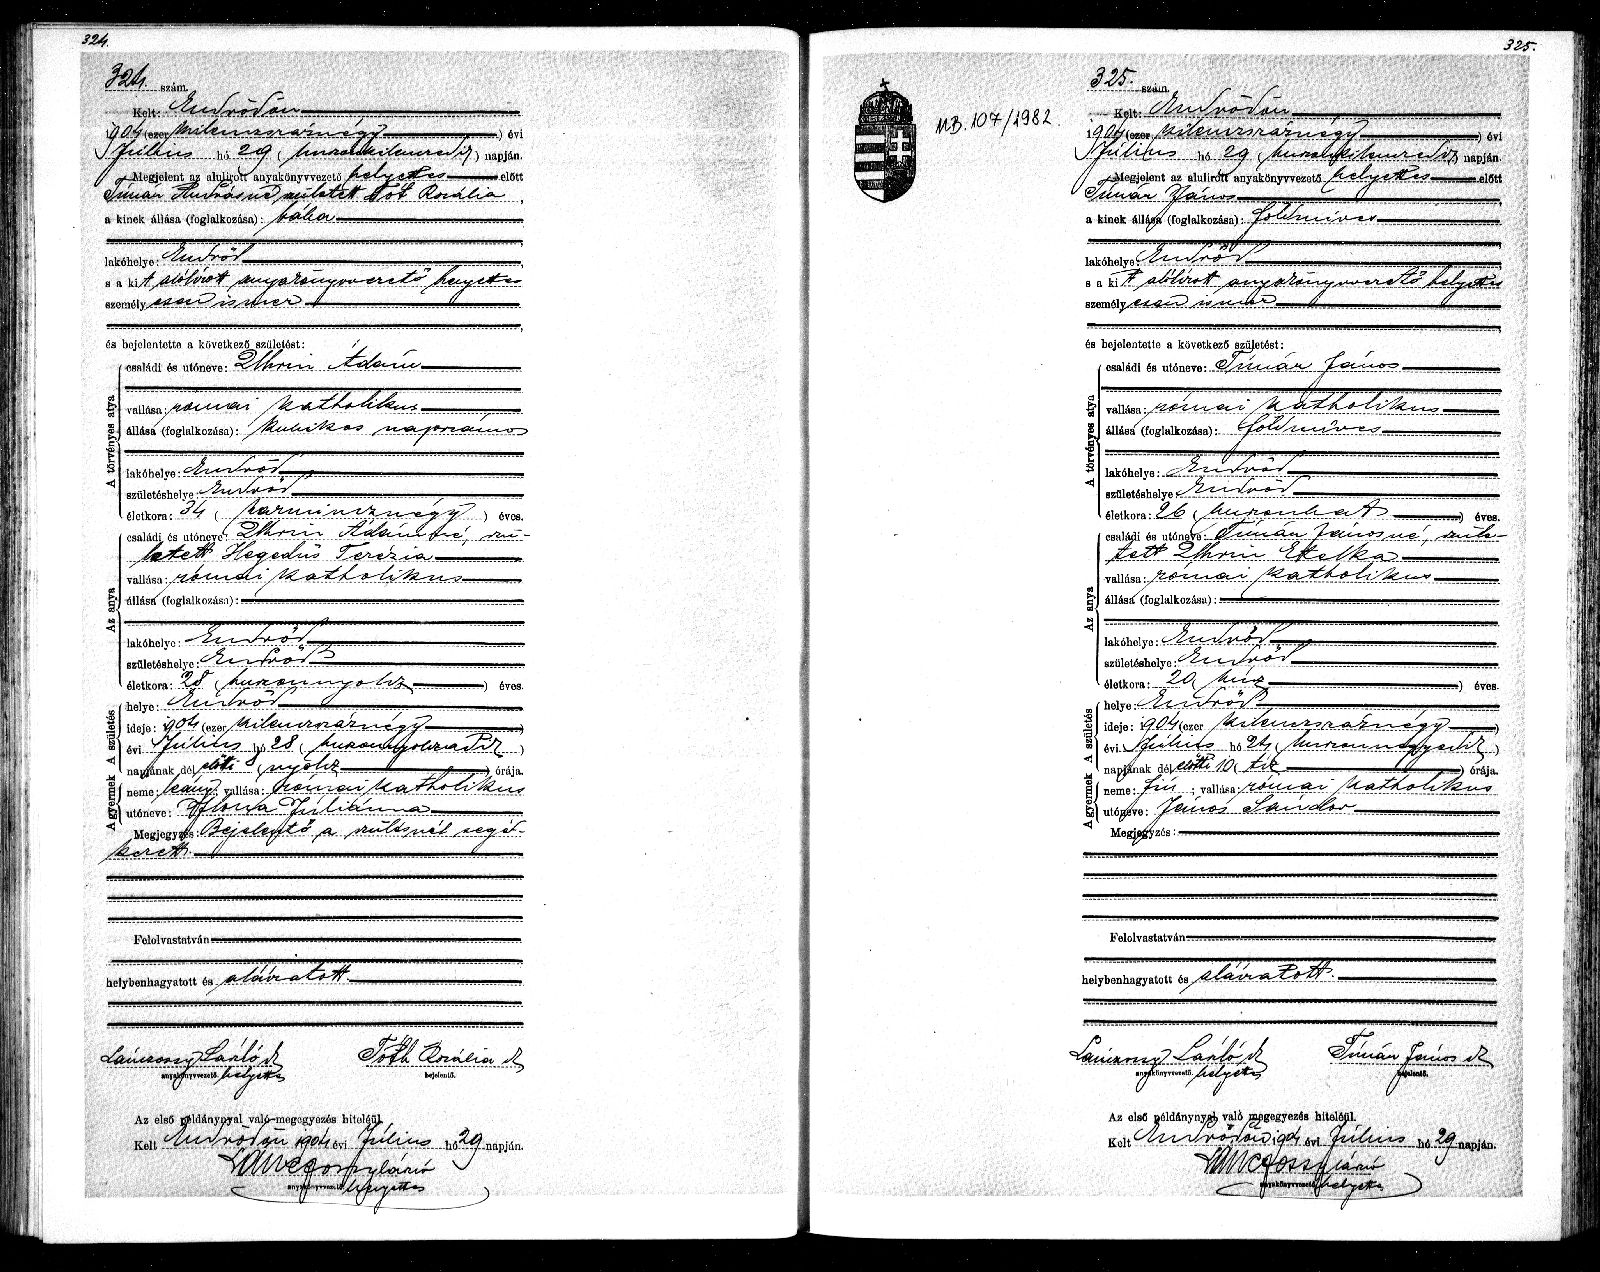 324.
324. szám.
Kelt: Endrődön
1904 (ezer kilenczszáznégy) évi
Július hó 29 (huszonkilenczedik) napján.
Megjelent az alulirott anyakönyvvezető helyettes előtt
Tímár Andrásné, született Tót Rozália,
a kinek állása (foglalkozása): bába
lakóhelye: Endrőd
s a kit alólírott anyakönyvvezető helyettes
személyesen ismer
és bejelentette a következő születést:
A törvényes atya
családi és utóneve: Uhrin Ádám
vallása: római katholikus
állása (foglalkozása): kubikos napszámos
lakóhelye: Endrőd
születéshelye: Endrőd
életkora: 34 (harmincznégy) éves.
Az anya
családi és utóneve: Uhrin Ádámné, szü-
letett Hegedüs Terézia
vallása: római katholikus
állása (foglalkozása):
lakóhelye: Endrőd
születéshelye: Endrőd
életkora: 28 (huszonnyolcz) éves.
A születés
helye: Endrőd
ideje: 1904 (ezer kilenczszáznégy)
évi Július hó 28 (huszonnyolczadik)
napjának dél előtti 8 (nyolcz) órája.
A gyermek
neme: leány; vallása: római katholikus
utóneve: Ilona Juliánna
Megjegyzés: Bejelentő a szülésnél segéd-
kezett.
Felolvastatván
helybenhagyatott és aláíratott.
Lánczossy László sk Tóth Rozália sk
anyakönyvvezető. helyettes bejelentő.
Az első példánynyal való megegyezés hiteléül.
Kelt Endrődön 1904 évi Július hó 29 napján.
Lánczossy László
anyakönyvvezető helyettes
325.
MB. 107/1982
325. szám.
Kelt: Endrődön
1904 (ezer kilenczszáznégy) évi
Július hó 29 (huszonkilenczedik) napján.
Megjelent az alulirott anyakönyvvezető helyettes előtt
Tímár János
a kinek állása (foglalkozása): földmíves
lakóhelye: Endrőd
s a kit alólírott anyakönyvvezető helyettes
személyesen ismer
és bejelentette a következő születést:
A törvényes atya
családi és utóneve: Tímár János
vallása: római katholikus
állása (foglalkozása): földmíves
lakóhelye: Endrőd
születéshelye: Endrőd
életkora: 26 (huszonhat) éves.
Az anya
családi és utóneve: Tímár Jánosné, szüle-
tett Uhrin Etelka
vallása: római katholikus
állása (foglalkozása):
lakóhelye: Endrőd
születéshelye: Endrőd
életkora: 20 (húsz) éves.
A születés
helye: Endrőd
ideje: 1904 (ezer kilenczszáznégy)
évi Július hó 24 (huszonnegyedik)
napjának dél előtti 10 (tíz) órája.
A gyermek
neme: fiú; vallása: római katholikus
utóneve: János Sándor
Megjegyzés:
Felolvastatván
helybenhagyatott és aláíratott.
Lánczossy László sk Tímár János sk
anyakönyvvezető. helyettes bejelentő.
Az első példánynyal való megegyezés hiteléül.
Kelt Endrődön 1904 évi Július hó 29 napján.
Lánczossy László
anyakönyvvezető helyettes